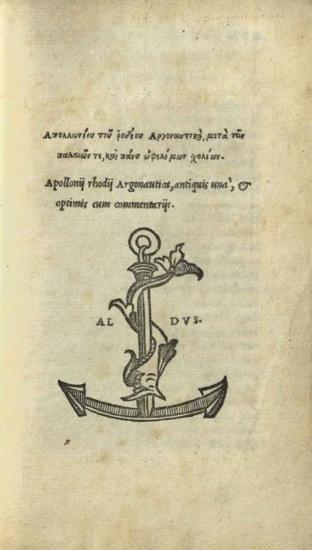 Ἀπολλωνίου τοῦ ῥοδίου Ἀργοναυτικὰ, μετὰ τῶν
παλαιῶν τε, καὶ πάνυ ὠφελίμων σχολίων.
Apollonij rhodij Argonautica, antiquis unà, &
optimis cum commentarijs.
AL DVS.